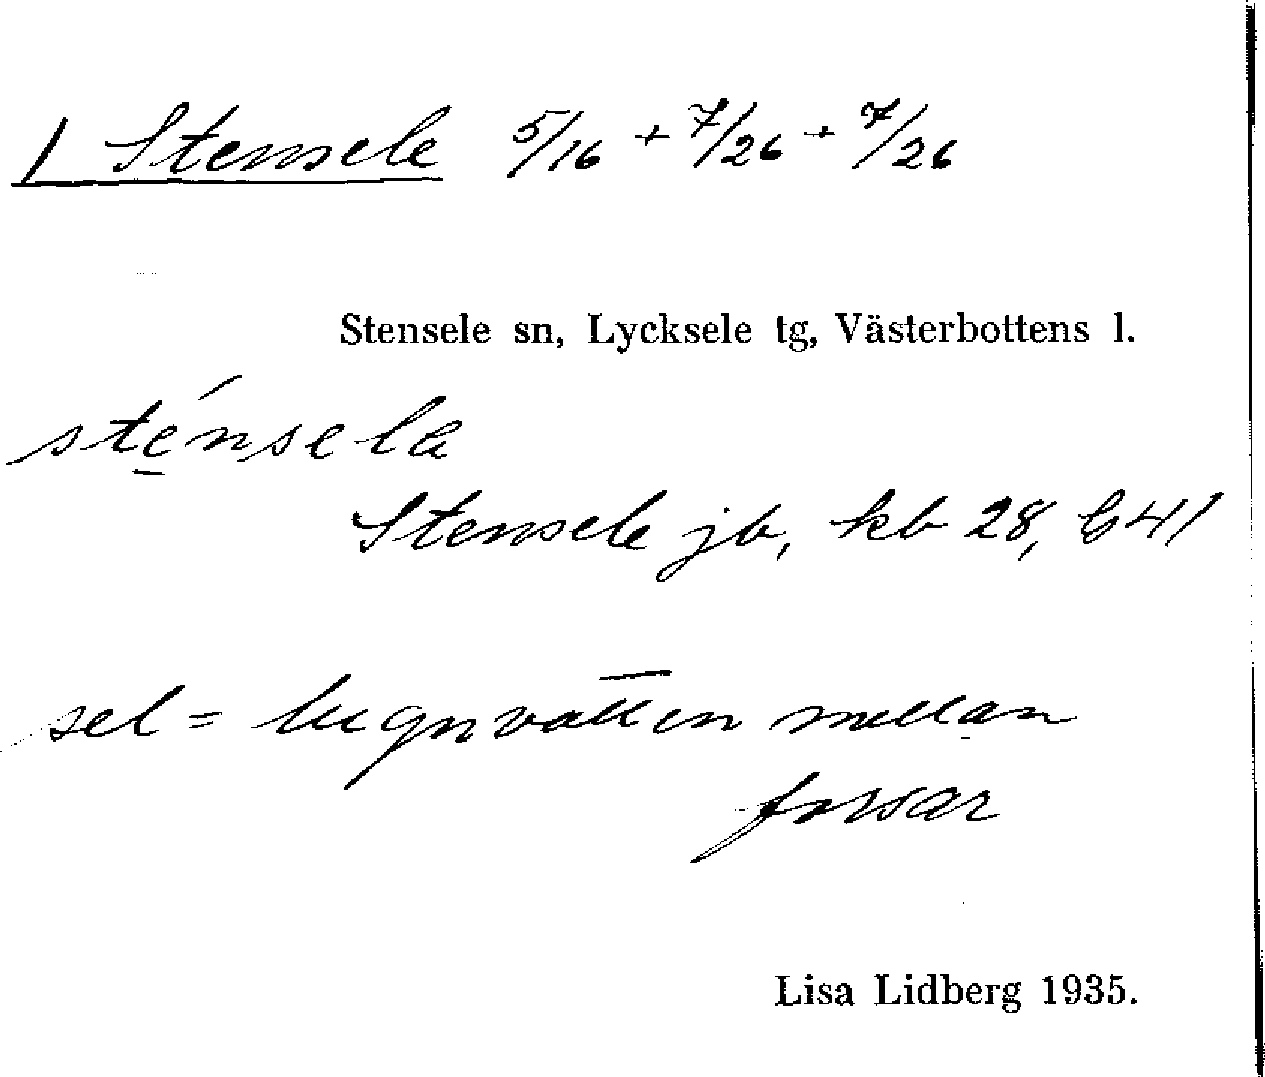 1 Stensele 5/16 + 7/26 + 7/26
Stensele sn, Lycksele tg, Västerbottens l.
sténsela
Stensele jb, kb 28, G41
sel = lugnvatten mellan
forsar
Lisa Lidberg 1935.